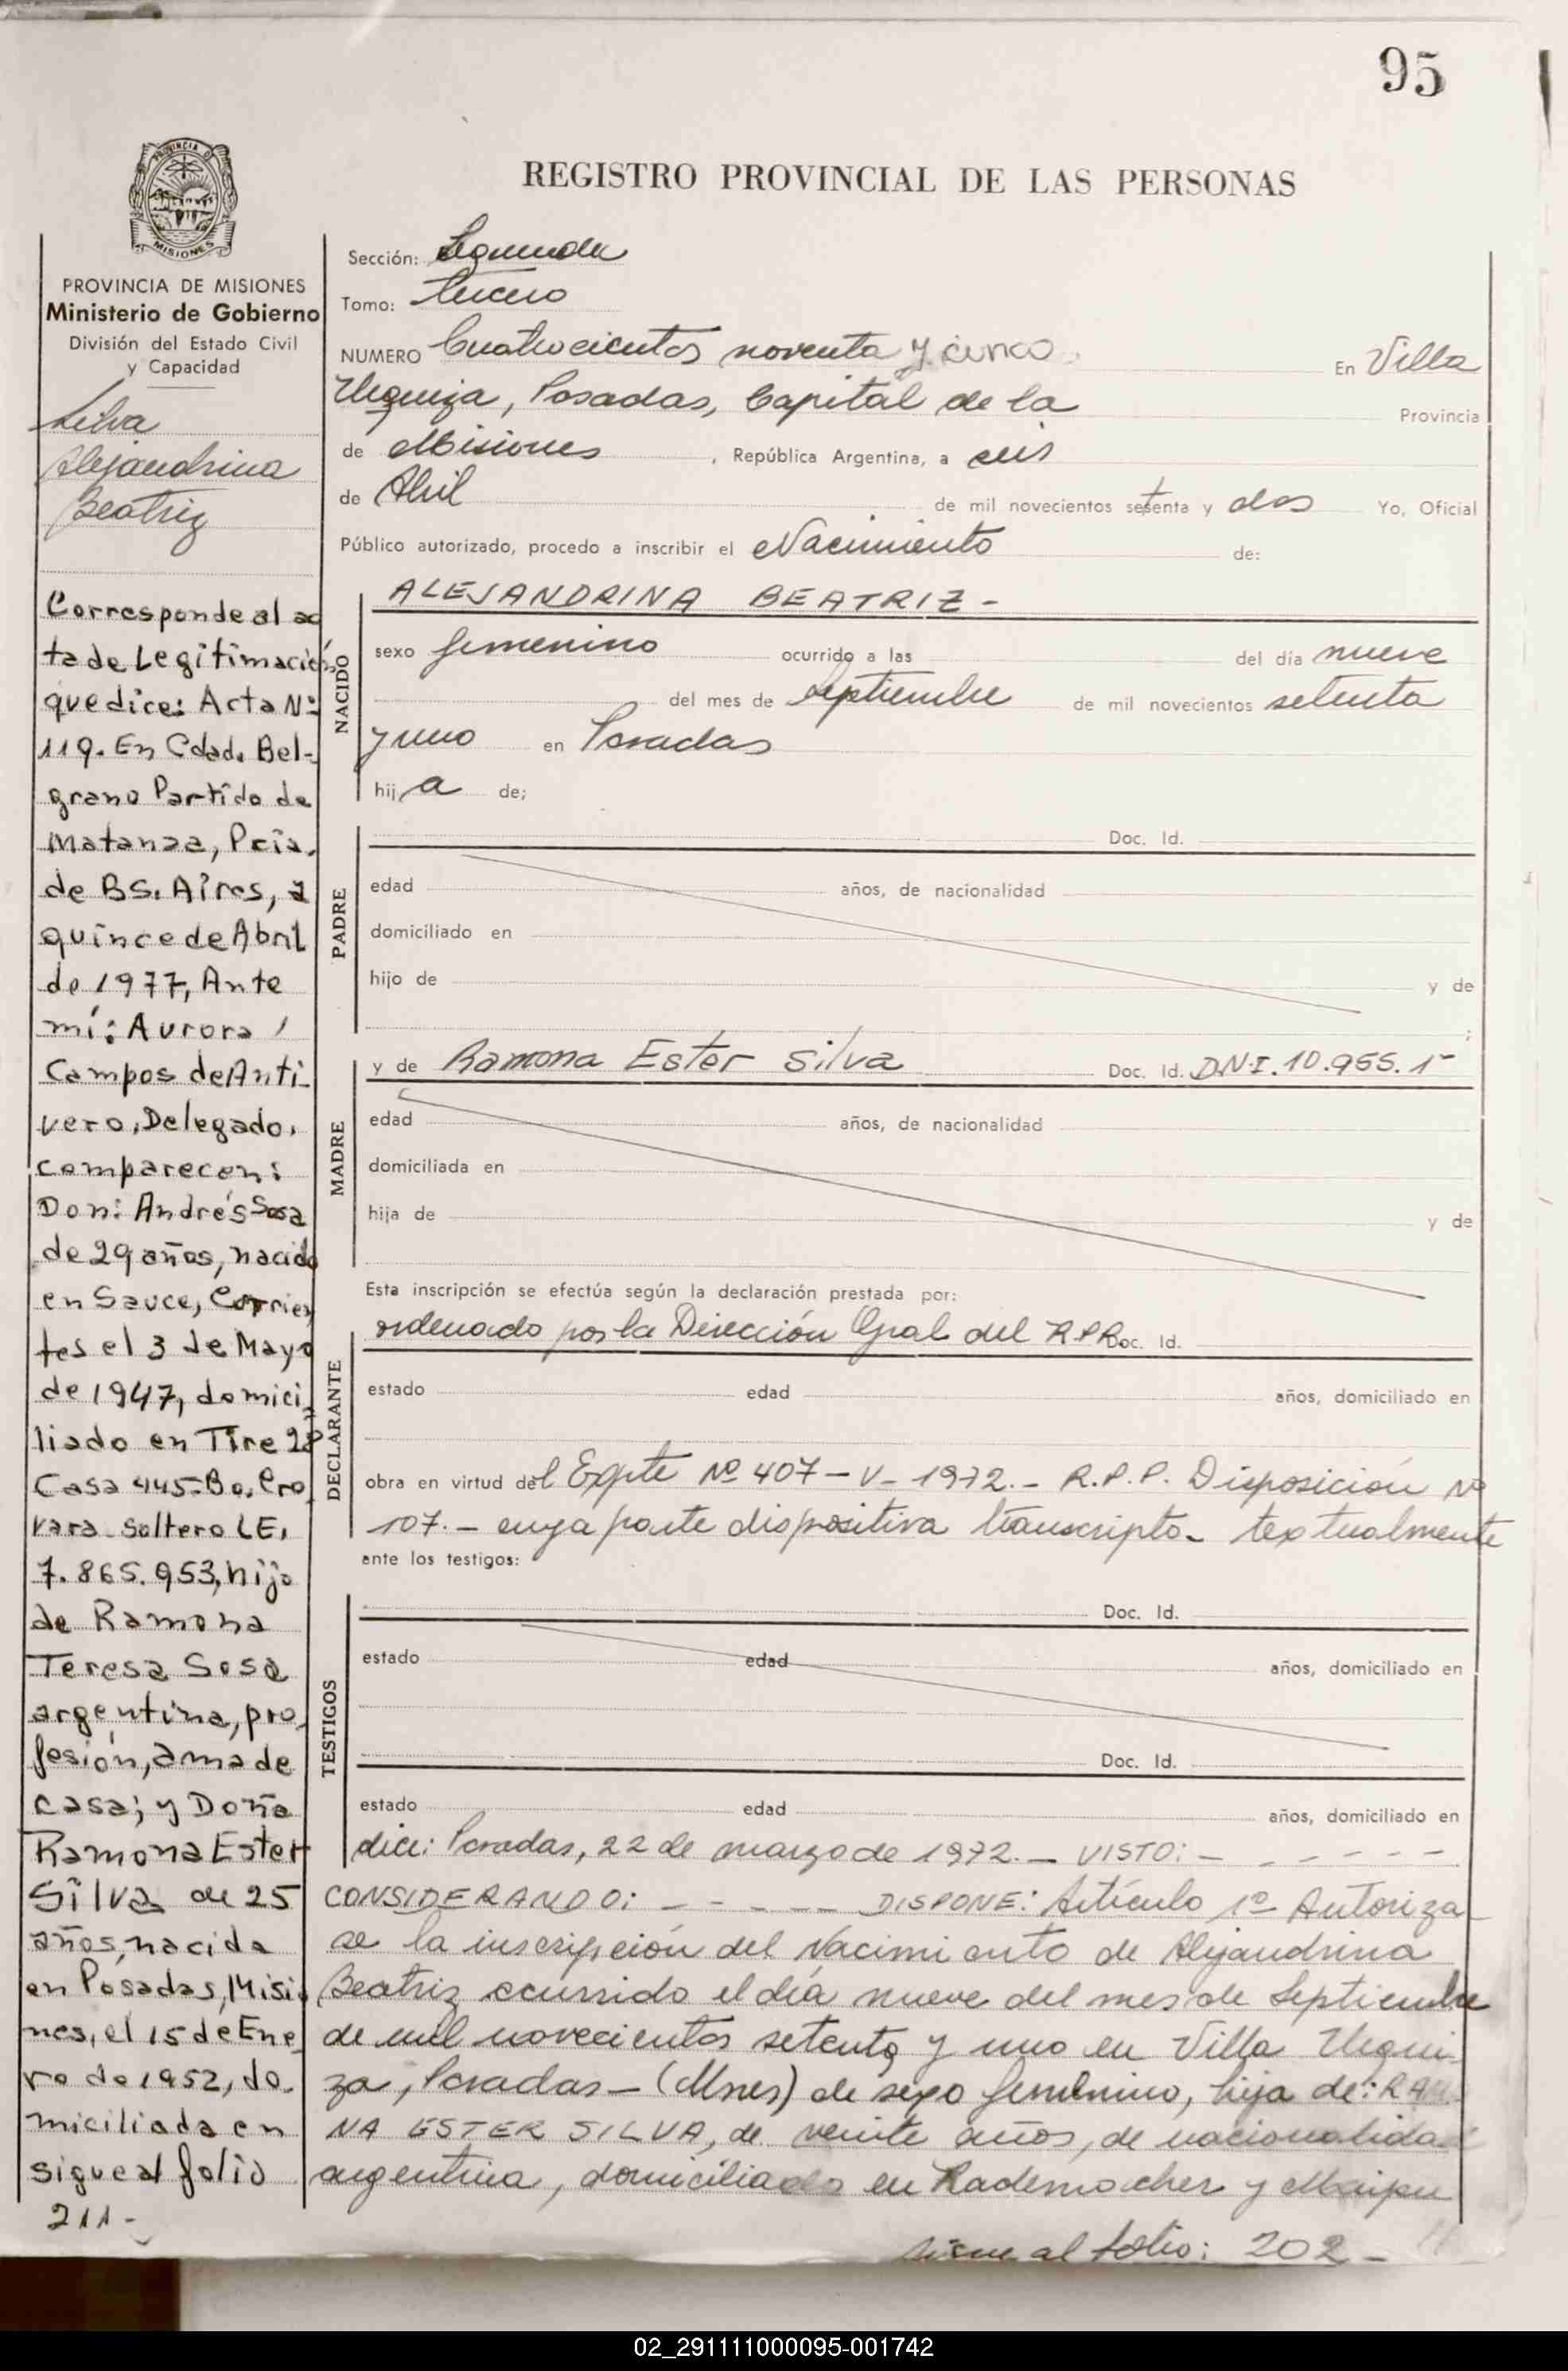 95
PROVINCIA DE
MISIONES
REGISTRO PROVINCIAL DE LAS PERSONAS
PROVINCIA DE MISIONES
Ministerio de Gobierno
División del Estado Civil
y Capacidad
Silva
Alejandrina
Beatriz
Corresponde al ac
ta de Legitimación
que dice: Acta Nº
119. En Cdad. Bel-
grano Partido de
Matanza, Pcia.
de BS. Aires, a
quince de Abril
de 1977, Ante
mí: Aurora
Campos de Anti-
vero, Delegado,
comparecen:
Don: Andrés Sosa
de 29 años, nacido
en Sauce, Corrien
tes el 3 de Mayo
de 1947, domici
liado en Tire 28
Casa 445-Bo. Cro
vara Soltero LE.
7.865.953, hijo
de Ramona
Teresa Sosa
argentina, pro
fesión, ama de
casa; y Doña
Ramona Ester
Silva de 25
años, nacida
en Posadas, Misio
nes, el 15 de Ene
ro de 1952, do.
miciliada en
sigue al folio
211-
Sección: Segunda
Tomo: tercero
NUMERO Cuatrocientos noventa y cinco En Villa
Urquiza, Posadas, Capital de la Provincia
de Misiones, República Argentina, a seis
de Abril de mil novecientos setenta y dos Yo, Oficial
Público autorizado, procedo a inscribir el Nacimiento de:
NACIDO
ALEJANDRINA BEATRIZ -
sexo femenino ocurrido a las del día nueve
del mes de septiembre de mil novecientos setenta
y uno en Posadas
hij a de;
PADRE
Doc. Id.
edad años, de nacionalidad
domiciliado en
hijo de y de
;
MADRE
y de Ramona Ester Silva Doc. Id. DN.I. 10.955.1
edad años, de nacionalidad
domiciliada en
hija de y de
Esta inscripción se efectúa según la declaración prestada por:
DECLARANTE
ordenado por la Dirección Gral del R.P.P. Doc. Id.
estado edad años, domiciliado en
obra en virtud del Expte Nº 407-V-1972.- R.P.P. Disposición Nº
107.- cuya parte dispositiva transcripto- textualmente
ante los testigos:
TESTIGOS
Doc. Id.
estado edad años, domiciliado en
Doc. Id.
estado edad años, domiciliado en
dice: Posadas, 22 de marzo de 1972.- VISTO: - - - - - -
CONSIDERANDO: - - - - - DISPONE: Artículo 1º Autoriza-
se la inscripción del Nacimiento de Alejandrina
Beatriz ocurrido el día nueve del mes de Septiembre
de mil novecientos setenta y uno en Villa Urqui-
za, Posadas- (Mnes) de sexo femenino, hija de: RAMO
NA ESTER SILVA, de veinte años, de nacionalidad
argentina, domiciliada en Rademacher y Maipu
sigue al folio: 202-
02_291111000095-001742